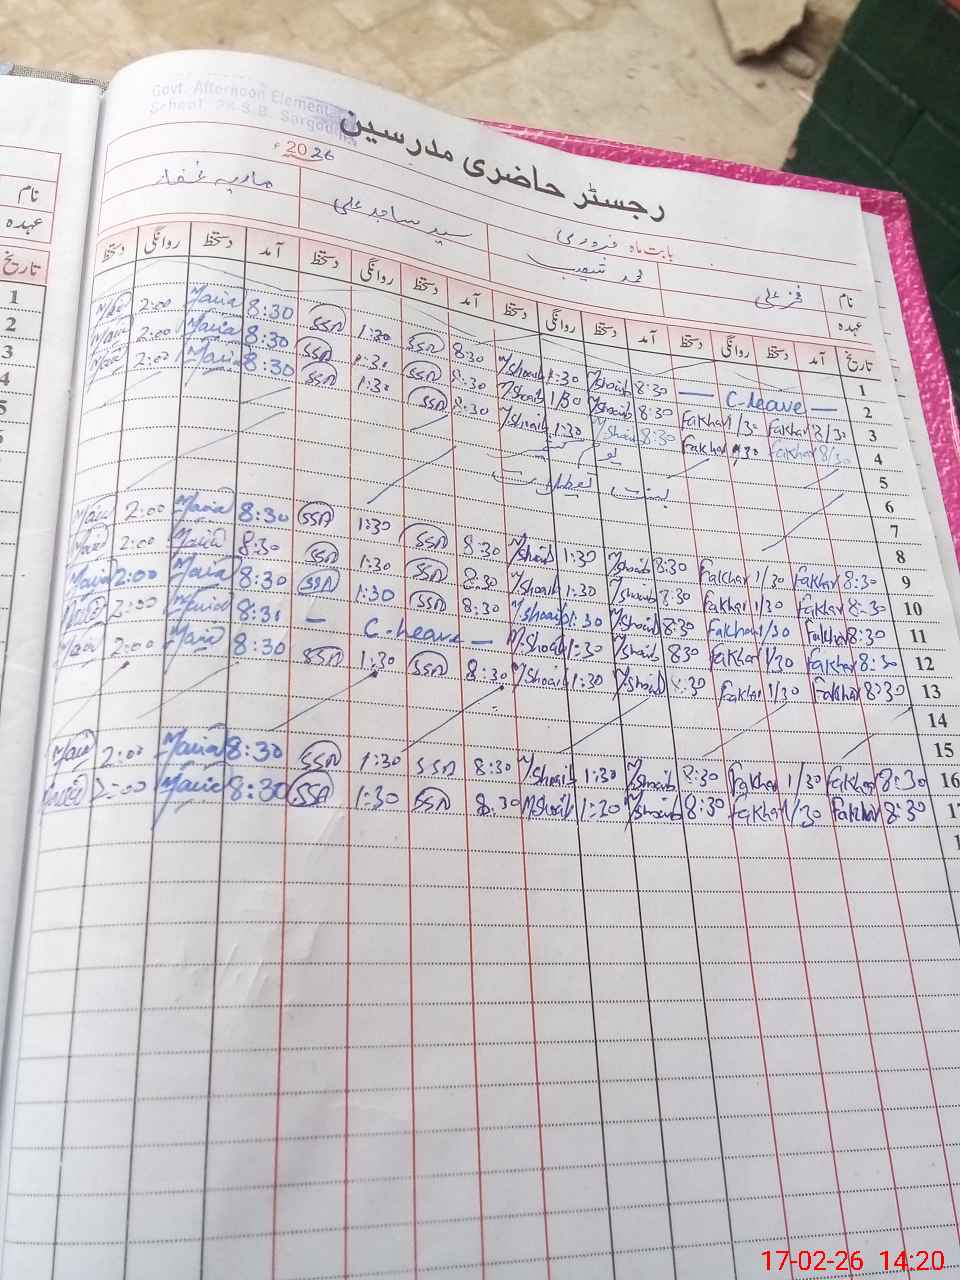 Govt. Afternoon Element
School 28.S.B. Sargodha
رجسٹر حاضری مدرسین
2026ء
بابت ماہ فروری
نام فخر علی محمد شعیب سید ساجد علی ماریہ غفار
عہدہ
تاریخ آمد دستخط روانگی دستخط آمد دستخط روانگی دستخط آمد دستخط روانگی دستخط آمد دستخط روانگی دستخط
1
2 — C-leave — 8:30 M/Shoaib 1:30 M/Shoaib 8:30 SSA 1:30 SSA 8:30 Maria 2:00 Maria
3 8/30 Fakhar 1/30 Fakhar 8:30 M/Shoaib 1/30 M/Shoaib 8:30 SSA 1:30 SSA 8:30 Maria 2:00 Maria
4 8/30 Fakhar 1:30 Fakhar 8:30 M/Shoaib 1:30 M/Shoaib 8:30 SSA 1:30 SSA 8:30 Maria 2:00 Maria
5 یوم
6 تعطیلات
7
8
9 8:30 Fakhar 1/30 Fakhar 8:30 M/Shoaib 1:30 M/Shoaib 8:30 SSA 1:30 SSA 8:30 Maria 2:00 Maria
10 8:30 Fakhar 1/30 Fakhar 8:30 M/Shoaib 1:30 M/Shoaib 8:30 SSA 1:30 SSA 8:30 Maria 2:00 Maria
11 8:30 Fakhar 1/30 Fakhar 8:30 M/Shoaib 1:30 M/Shoaib 8:30 SSA 1:30 SSA 8:30 Maria 2:00 Maria
12 8:30 Fakhar 1/30 Fakhar 830 M/Shoaib 1:30 M/Shoaib — C-leave — 8:30 Maria 2:00 Maria
13 8:30 Fakhar 1/30 Fakhar 8:30 M/Shoaib 1:30 M/Shoaib 8:30 SSA 1:30 SSA 8:30 Maria 2:00 Maria
14
15
16 8:30 Fakhar 1/30 Fakhar 8:30 M/Shoaib 1:30 M/Shoaib 8:30 SSA 1:30 SSA 8:30 Maria 2:00 Maria
17 8:30 Fakhar 1/30 Fakhar 8:30 M/Shoaib 1:30 M/Shoaib 8:30 SSA 1:30 SSA 8:30 Maria 2:00 Maria
نام
عہدہ
تاریخ
1
2
3
4
5
17-02-26 14:20